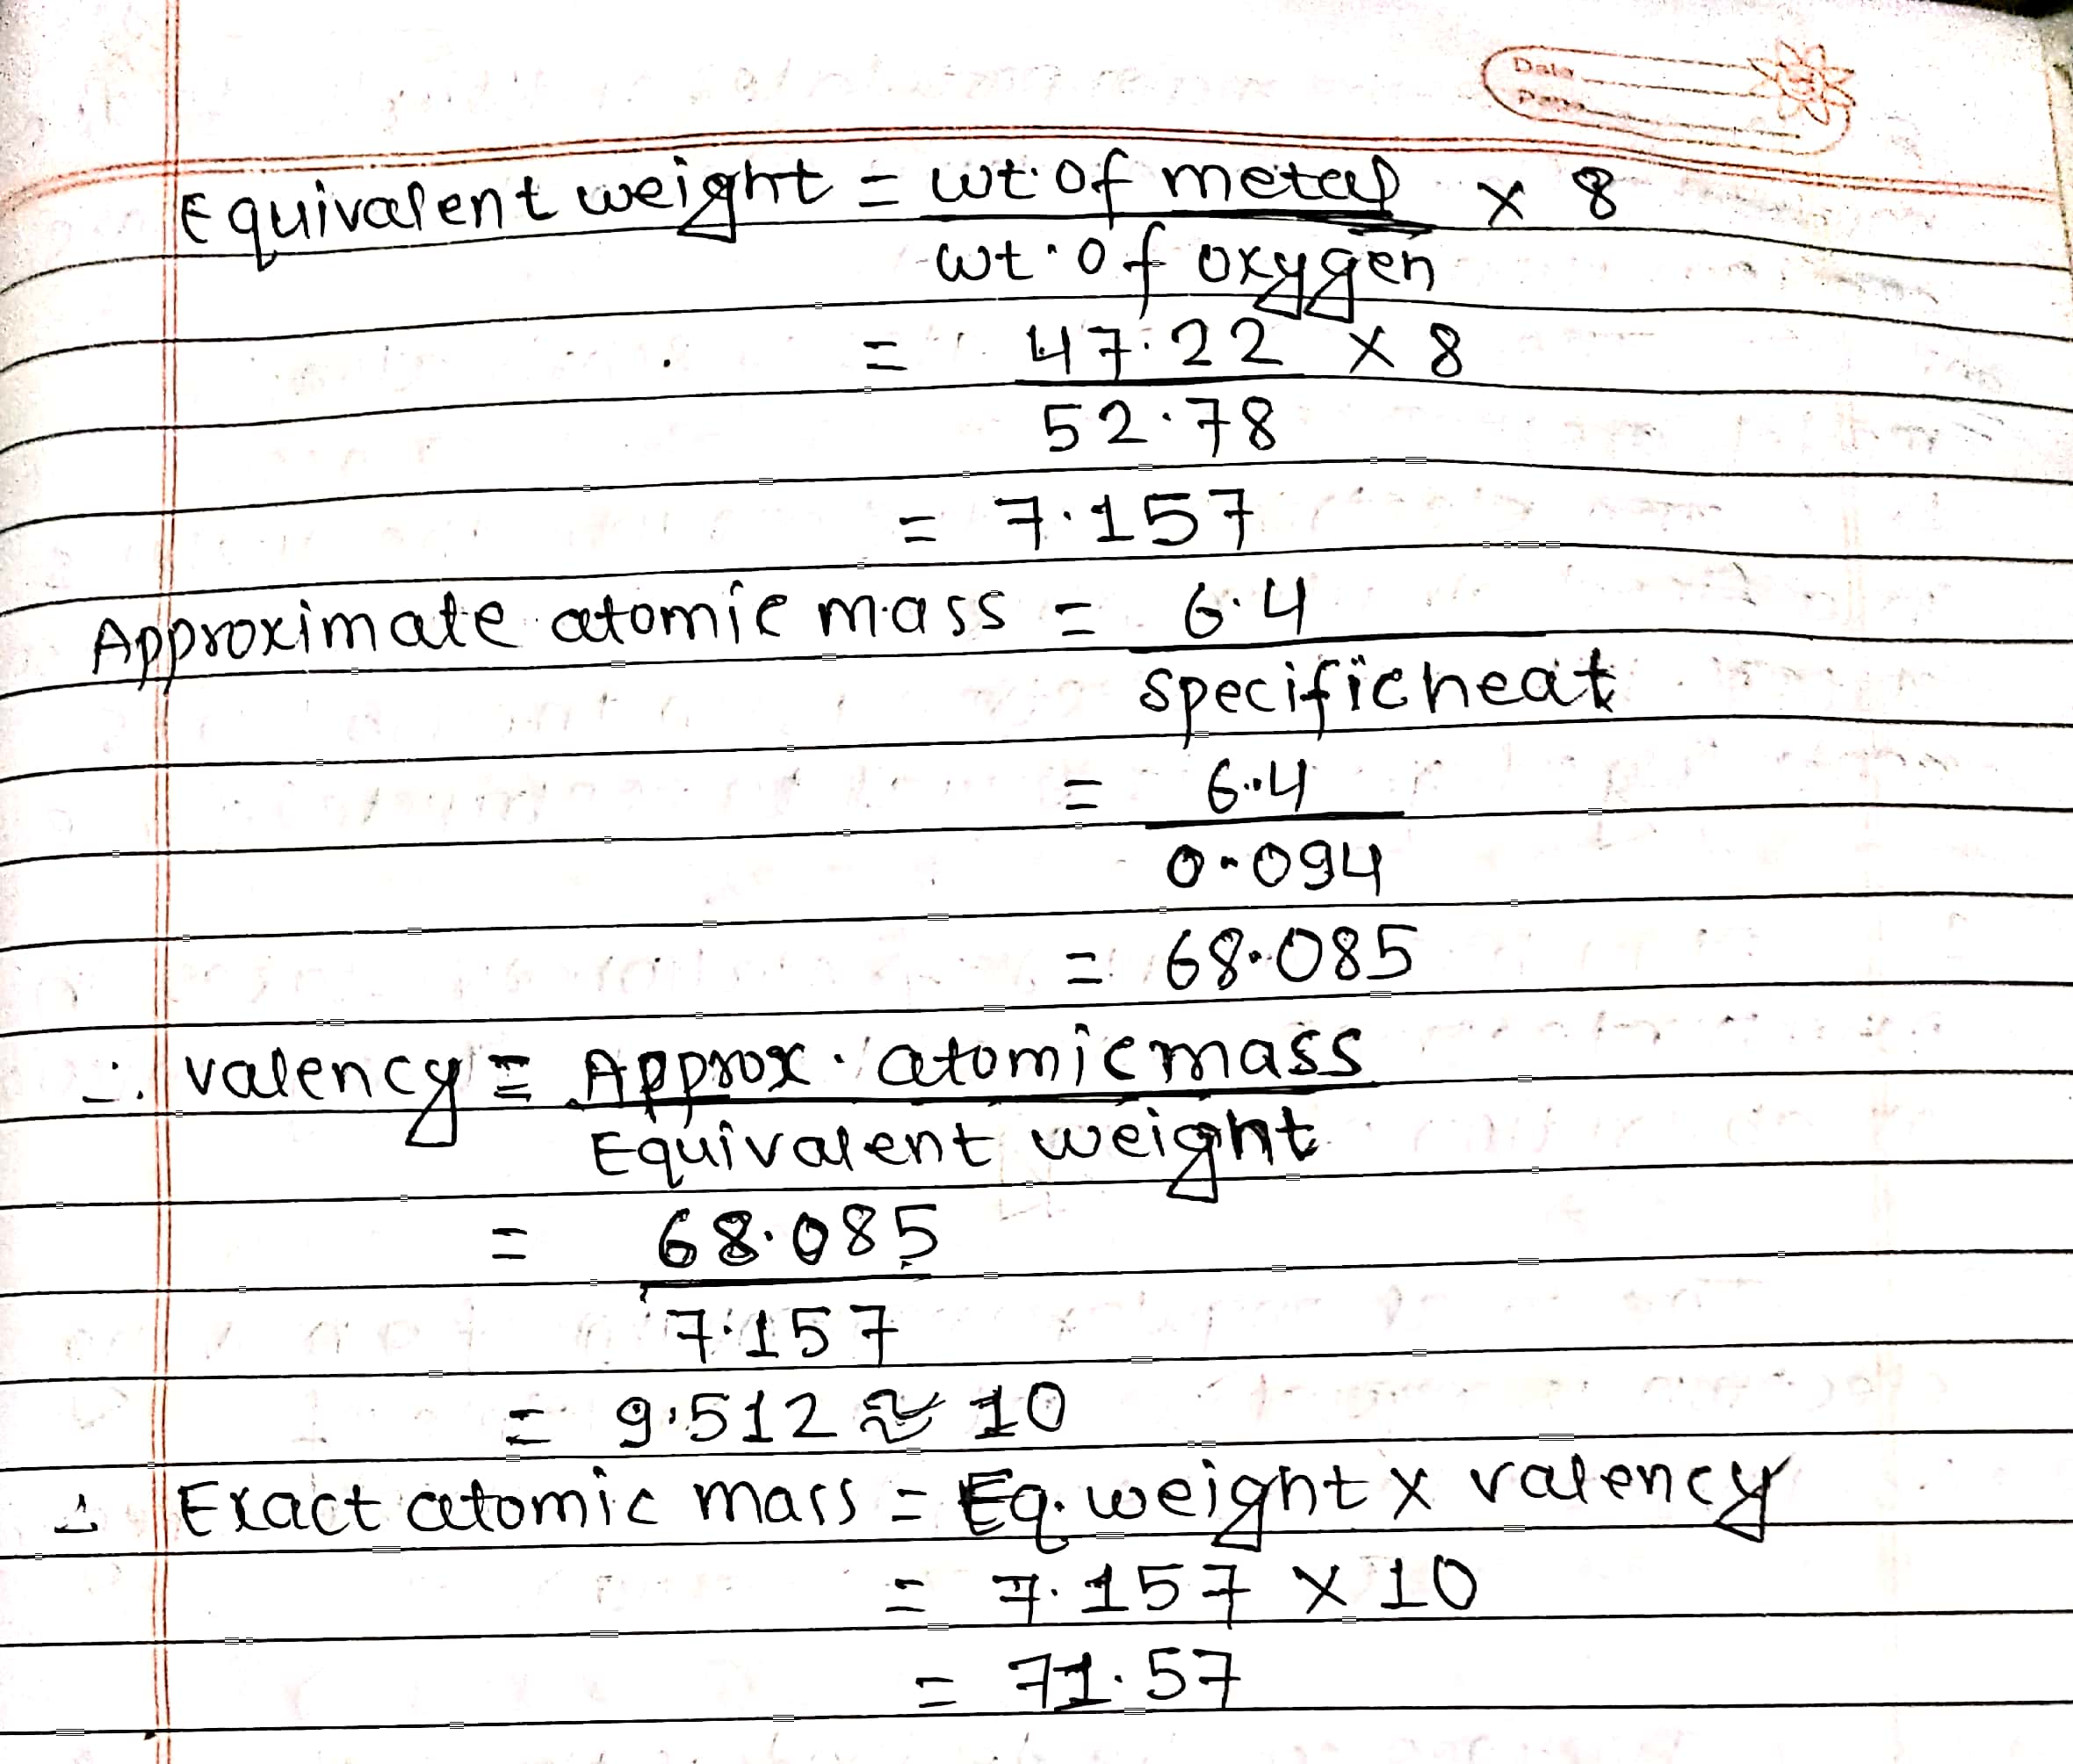 Date
Page
Equivalent weight = wt. of metal × 8
wt. of oxygen
= 47.22 × 8
52.78
= 7.157
Approximate atomic mass = 6.4
specific heat
= 6.4
0.094
= 68.085
∴ valency = Approx. atomic mass
Equivalent weight
= 68.085
7.157
= 9.512 ≈ 10
∴ Exact atomic mass = Eq. weight × valency
= 7.157 × 10
= 71.57